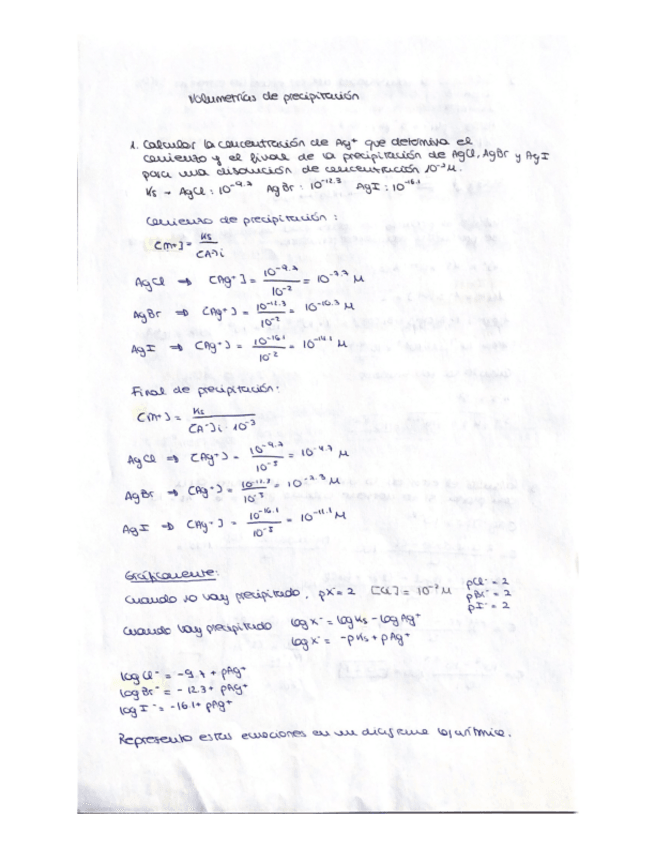 Volumetrías de precipitación
1. Calcular la concentración de Ag⁺ que determina el
comienzo y el final de la precipitación de AgCl, AgBr y AgI
para una disolución de concentración 10⁻²M.
Ks → AgCl: 10⁻⁹·⁷ AgBr: 10⁻¹²·³ AgI: 10⁻¹⁶·¹
Comienzo de precipitación:
[M+] = Ks / [A⁻]i
AgCl ⇒ [Ag⁺] = 10⁻⁹·⁷ / 10⁻² = 10⁻⁷·⁷ M
AgBr ⇒ [Ag⁺] = 10⁻¹²·³ / 10⁻² = 10⁻¹⁰·³ M
AgI ⇒ [Ag⁺] = 10⁻¹⁶·¹ / 10⁻² = 10⁻¹⁴·¹ M
Final de precipitación:
[M+] = Ks / [A⁻]i · 10⁻³
AgCl ⇒ [Ag⁺] = 10⁻⁹·⁷ / 10⁻⁵ = 10⁻⁴·⁷ M
AgBr ⇒ [Ag⁺] = 10⁻¹²·³ / 10⁻⁵ = 10⁻⁷·³ M
AgI ⇒ [Ag⁺] = 10⁻¹⁶·¹ / 10⁻⁵ = 10⁻¹¹·¹ M
Gráficamente:
Cuando no hay precipitado, pX = 2 = 10⁻²M pCl⁻ = 2
pBr⁻ = 2
pI⁻ = 2
Cuando hay precipitado log X⁻ = log Ks - log Ag⁺
log X⁻ = -pKs + pAg⁺
log Cl⁻ = -9.7 + pAg⁺
log Br⁻ = -12.3 + pAg⁺
log I⁻ = -16.1 + pAg⁺
Represento estas ecuaciones en un diagrama logarítmico.